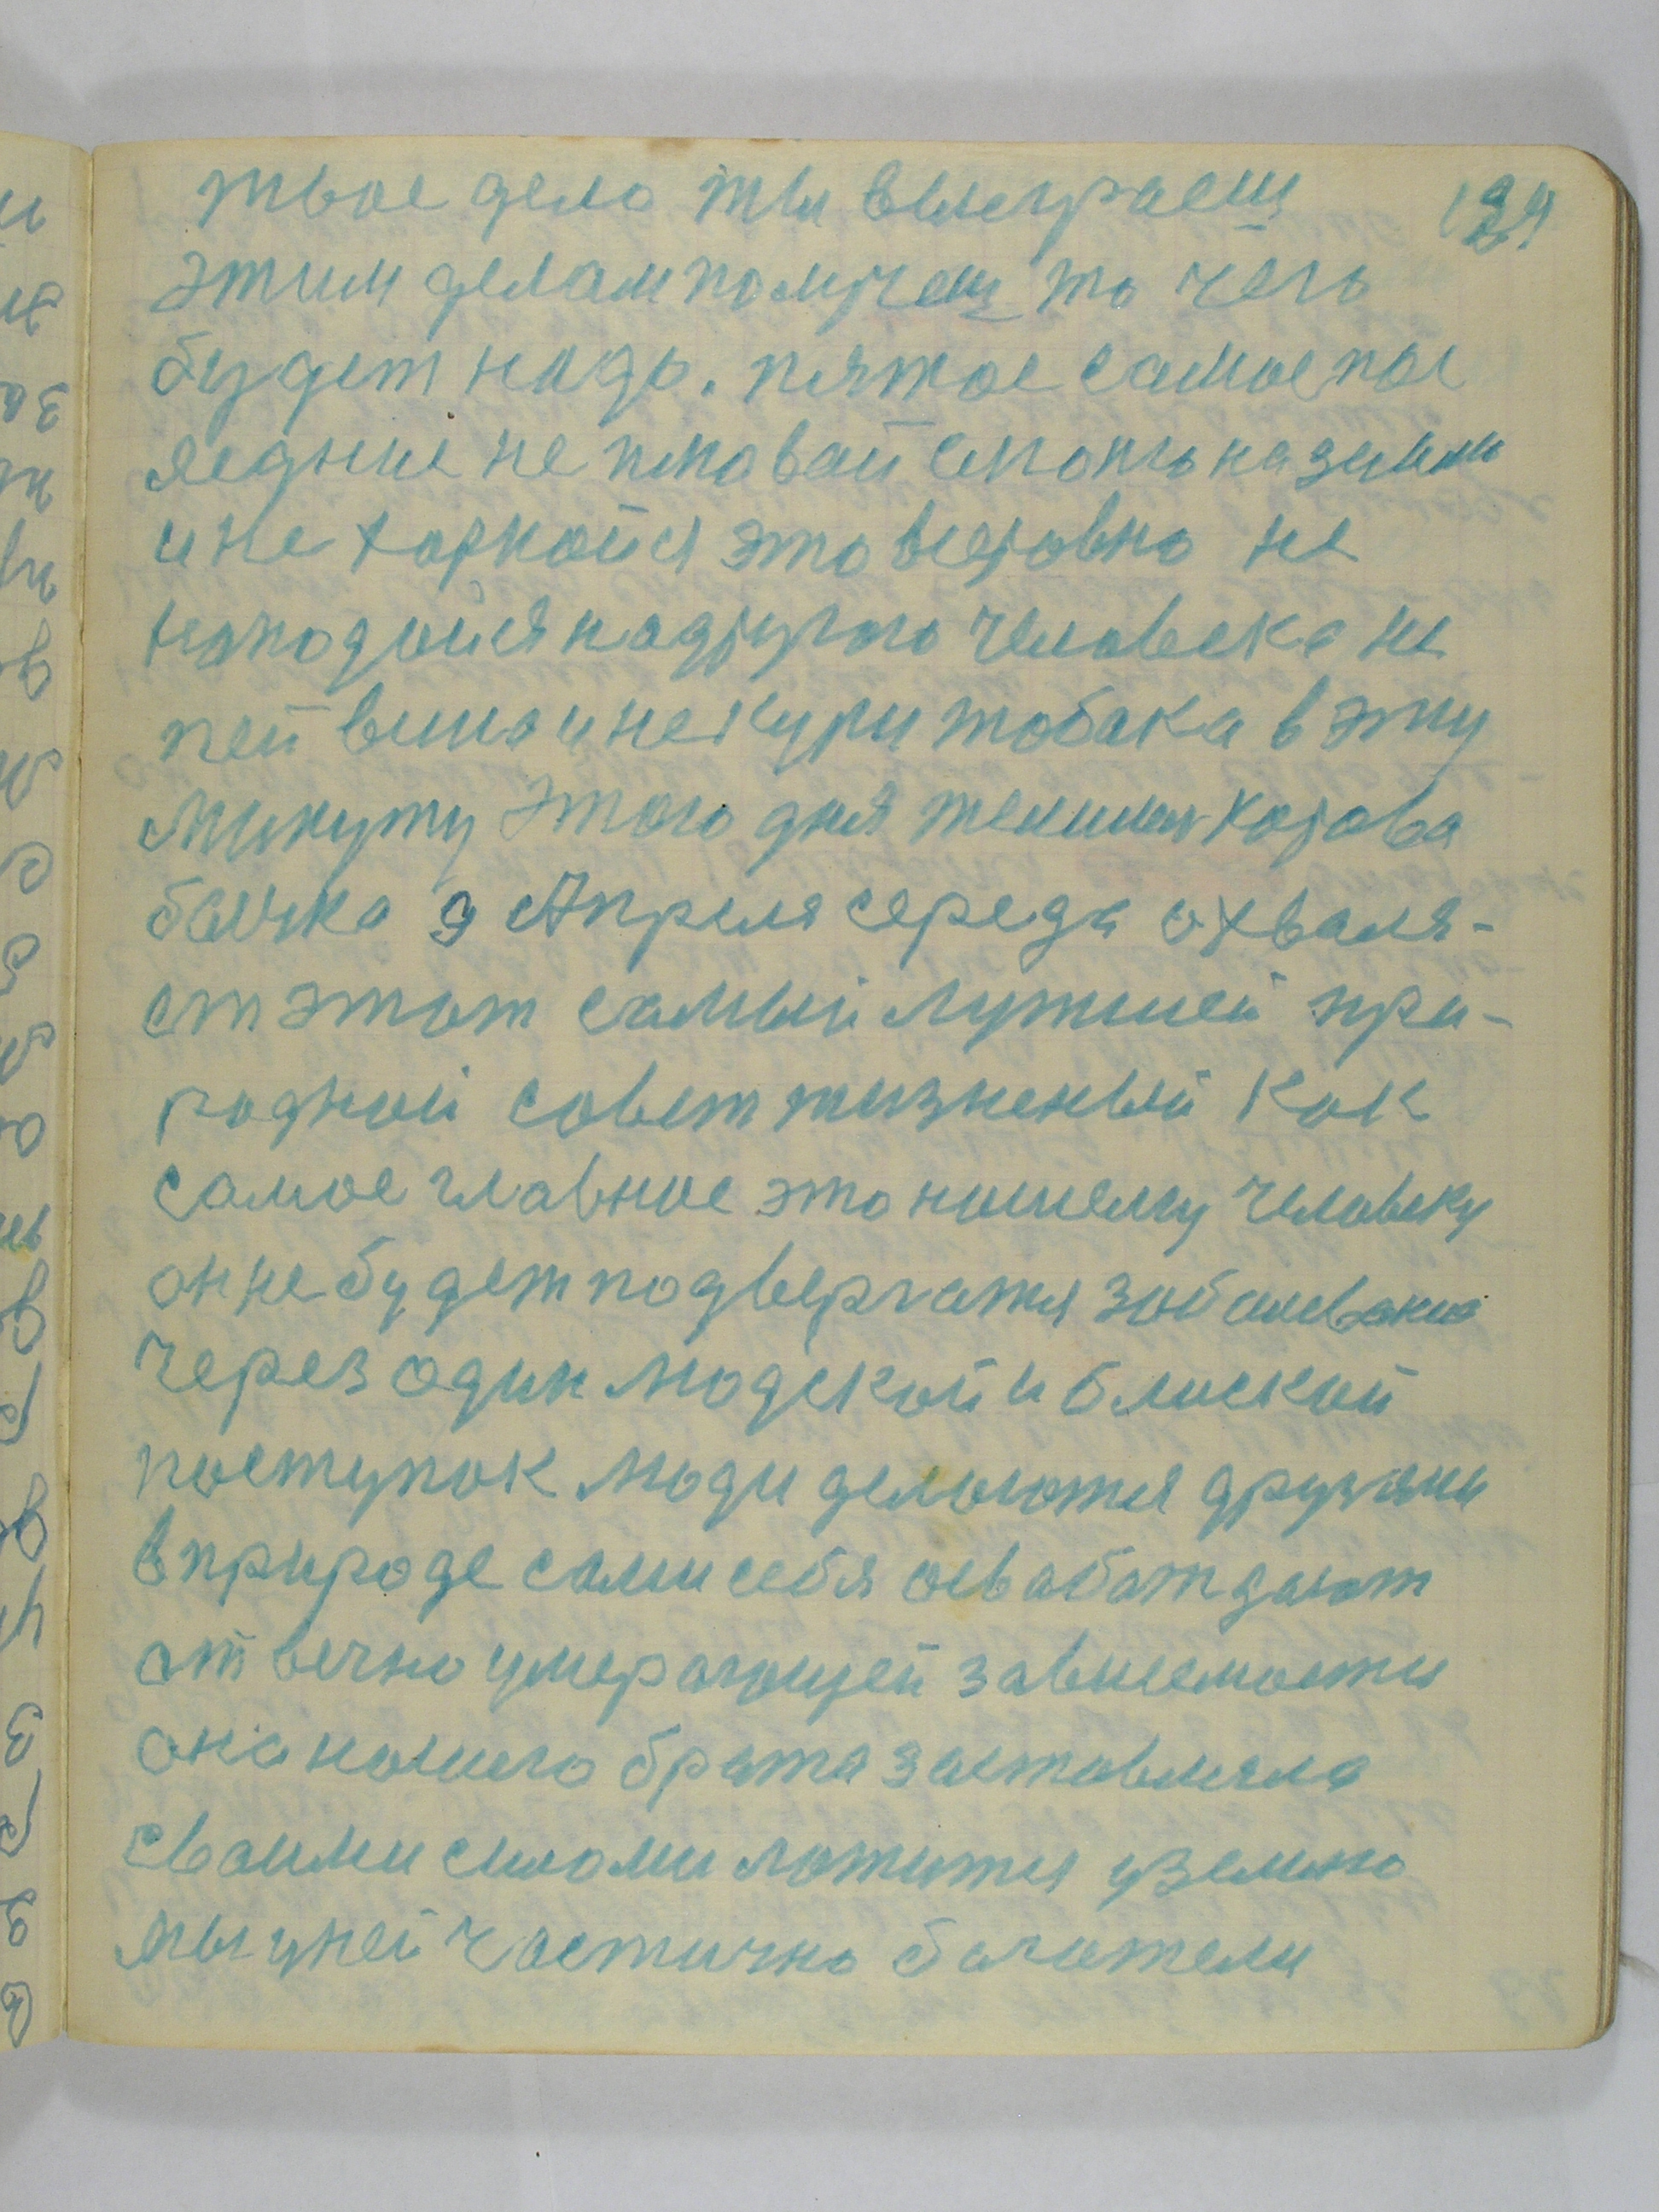 твое дело ты выеграеш
этим делам получеш то чего
будет надо. пятое самое пос
ледние не плювай слюнь на землю
и не харкайся это всеровно не
нападыйся на другого человека не
пей вина и не кури тобака в эту
минуту Этого дня телилася корова
бычка 9 Апреля середа охваля-
ет этот самый лутшей при-
родной совет жизненый как
самое главное это нашему человеку
он не будет подвергатся заболеванию
через один людской и блиской
поступок люди делаются друзями
в природе сами себя освабаждают
от вечно умерающей зависемости
она нашего брата заставляла
сваими силами ложится у землю
мы у ней частично багатели